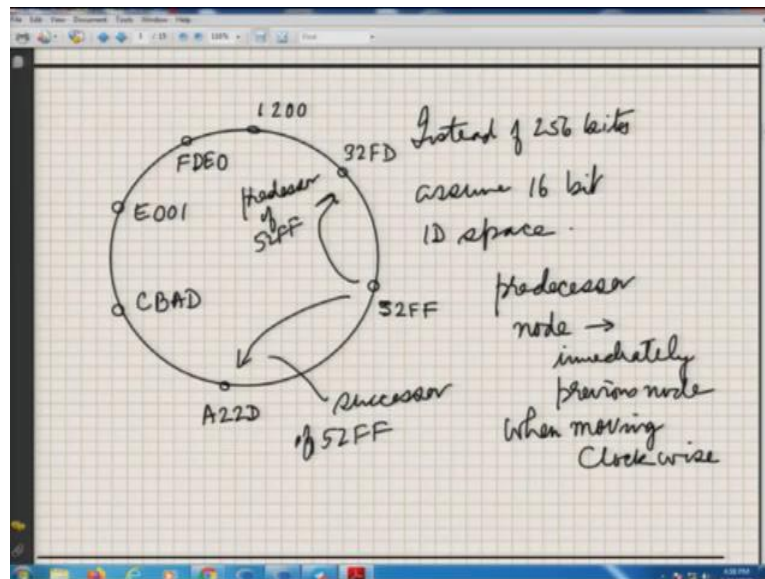 File Edit View Document Tools Window Help
1 / 15
Find
1200
FDE0
32FD
E001
predessor
of
52FF
CBAD
52FF
A22D
successor
of 52FF
Instead of 256 bits
assume 16 bit
ID space.
predecessor
node →
imediately
previous node
when moving
Clockwise
4:38 PM